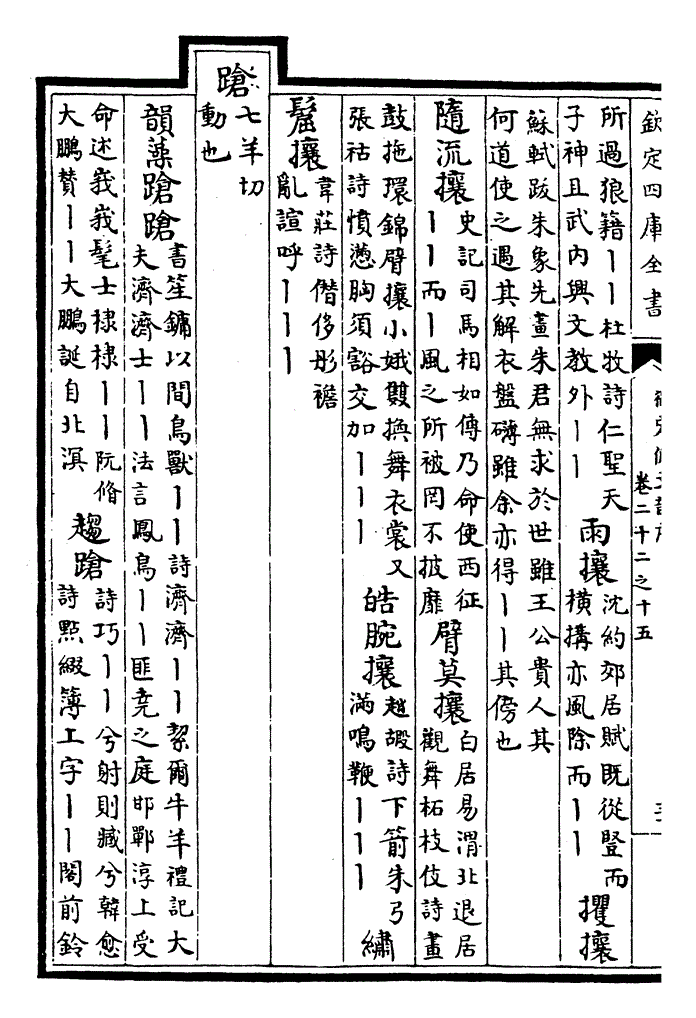 欽定四庫全書
卷二十二之十五
所過狼籍丨丨杜牧詩仁聖天
子神且武内興文教外丨丨
雨攘
沈約郊居賦既從豎而
横搆亦風除而丨丨
攫攘
蘇軾跋朱象先畫朱君無求於世雖王公貴人其
何道使之遇其解衣盤礴雖余亦得丨丨其傍也
隨流攘
史記司馬相如傳乃命使西征
丨丨而丨風之所被罔不披靡
臂莫攘
白居易渭北退居
觀舞柘枝伎詩畫
鼓拖環錦臂攘小娥雙換舞衣裳又
張祜詩憤懣胸須豁交加丨丨丨
皓腕攘
趙嘏詩下箭朱弓
滿鳴鞭丨丨丨
繡
攘
韋莊詩僭侈彤襜
亂諠呼丨丨丨
蹌
七羊切
動也
韻藻蹌蹌
書笙鏞以間鳥獸丨丨詩濟濟丨丨絜爾牛羊禮記大
夫濟濟士丨丨法言鳳鳥丨丨匪堯之庭邯鄲淳上受
命述峩峩髦士棣棣丨丨阮脩
大鵬賛丨丨大鵬誕自北溟
趨蹌
詩巧丨丨兮射則臧兮韓愈
詩點綴簿上字丨丨閤前鈴